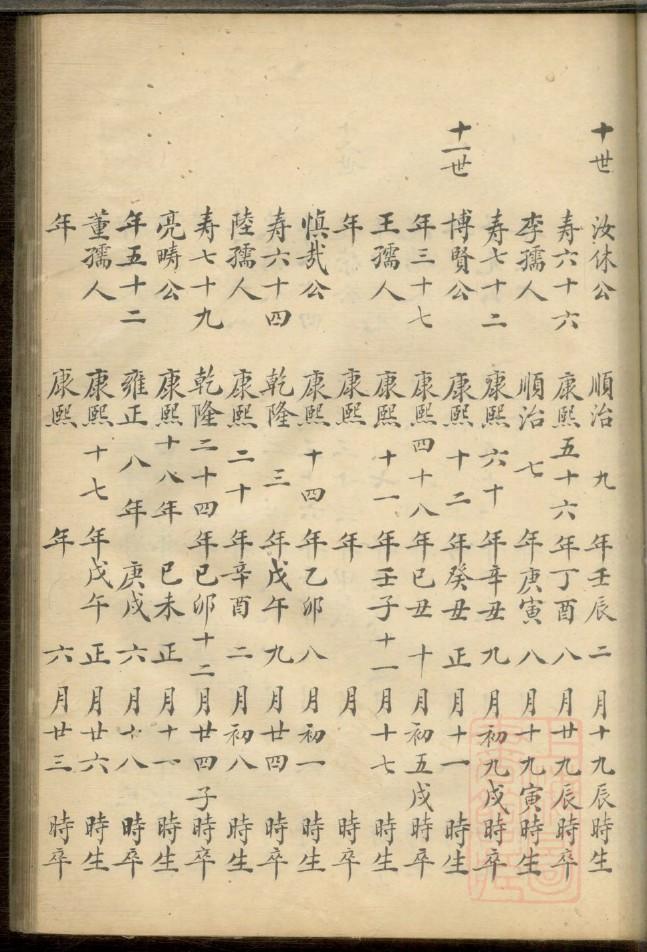 十世
汝休公 順治九年壬辰二月十九辰時生
寿六十六 康熙五十六年丁酉八月廿九辰時卒
李孺人 順治七年庚寅八月十九寅時生
寿七十二 康熙六十年辛丑九月初九戌時卒
十一世
博賢公 康熙十二年癸丑正月十一時生
年三十七 康熙四十八年己丑十月初五戌時卒
王孺人 康熙十一年壬子十一月十七時生
年 康熙年月時卒
慎哉公 康熙十四年乙卯八月初一時生
寿六十四 乾隆三年戊午九月廿四時卒
陸孺人 康熙二十年辛酉二月初八時生
寿七十九 乾隆二十四年已卯十二月廿四子時卒
亮疇公 康熙十八年已未正月十一時生
年五十二 雍正八年庚戌六月十八時卒
董孺人 康熙十七年戊午正月廿六時生
年 康熙年六月廿三時卒